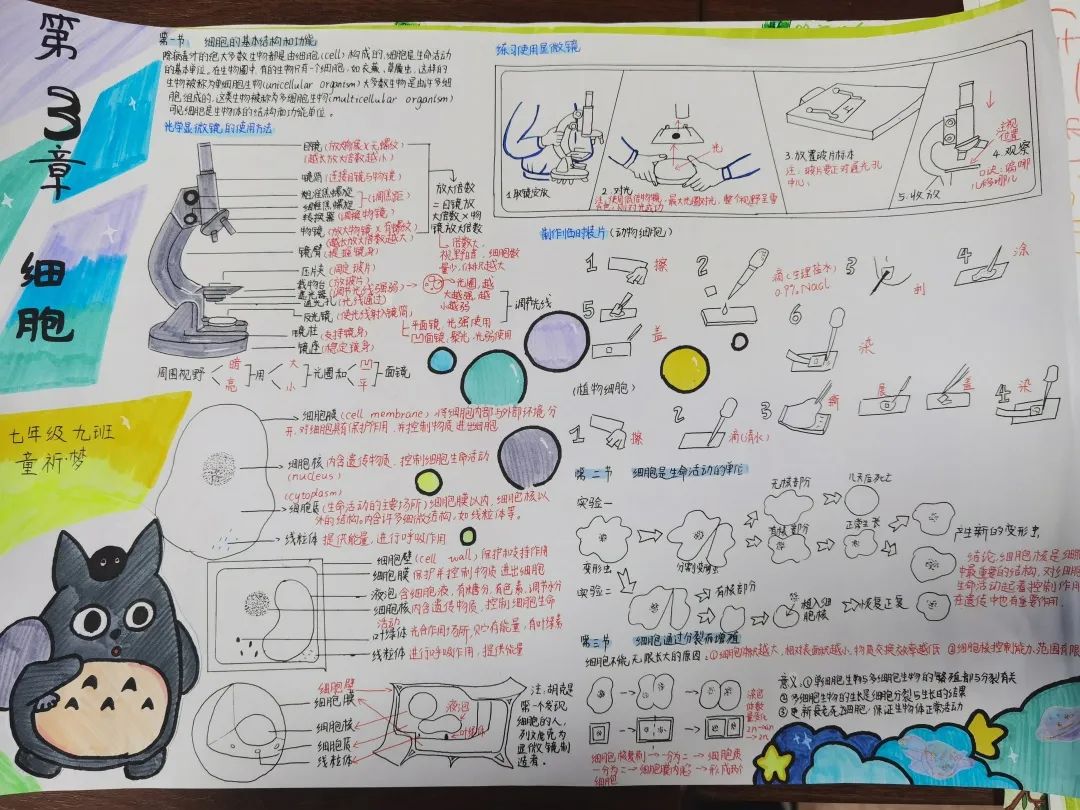 第3章 细胞
七年级九班
童祈梦
第一节 细胞的基本结构和功能
除病毒外的绝大多数生物都是由细胞(cell)构成的,细胞是生命活动
的基本单位。在生物圈中,有的生物只有一个细胞,如衣藻、草履虫,这样的
生物被称为单细胞生物(unicellular organism)大多数生物是由许多细
胞组成的,这类生物被称为多细胞生物(multicellular organism)
可见细胞是生物体的结构和功能单位。
光学显微镜的使用方法
目镜(放物镜×无螺纹)
(越长放大倍数越小)
镜筒(连接目镜与物镜)
粗准焦螺旋
细准焦螺旋
(调焦距)
转换器(调换物镜)
物镜(放大物镜×有螺纹)
(越长放大倍数越大)
镜臂(握镜身)
压片夹(固定玻片)
载物台(放玻片)
遮光器(调节光线强弱)
通光孔(光线通过)
反光镜(使光线射入镜筒)
镜柱(支持镜身)
镜座(稳定镜身)
放大倍数
=目镜放
大倍数×物
镜放大倍数
倍数大,
视野暗,细胞数
量少,体积越大
光圈,越
大越强,越
小越弱
调节光线
平面镜,光强使用
凹面镜,聚光,光弱使用
周围视野 暗 亮 用 大 小 光圈和 凹 平 面镜
细胞膜(cell membrane)将细胞内部与外部环境分
开,对细胞具有保护作用,并控制物质进出细胞
细胞核 内含遗传物质、控制细胞生命活动
(nucleus)
(cytoplasm)
细胞质(生命活动的主要场所)细胞膜以内、细胞核以
外的结构。内含许多细微结构,如线粒体等。
线粒体 提供能量,进行呼吸作用
细胞壁(cell wall)保护和支持作用
细胞膜 保护并控制物质进出细胞
液泡 含细胞液,有糖分,有色素,调节水分
细胞核 内含遗传物质、控制细胞生命
活动
叶绿体 光合作用场所,贮有能量,有叶绿素
线粒体 进行呼吸作用,提供能量
细胞壁
细胞膜
细胞核
细胞质
线粒体
液泡
叶绿体
注:胡克是
第一个发现
细胞的人,
列文虎克为
显微镜制
造者。
练习使用显微镜
1.取镜安放
2.对光
光
3.放置玻片标本
注:玻片要正对通光孔
中心
注视
位置
4.观察
5.收放
制作临时装片(动物细胞)
1 擦
2 滴(生理盐水)
0.9% NaCl
3 刮
4 涂
5 盖
6 染
(植物细胞)
1 擦
2 滴(清水)
3 撕
展
盖
4 染
第二节 细胞是生命活动的单位
实验一
变形虫
分割变形虫
无核部分
几天后死亡
有核部分
正常生长
产生新的变形虫
实验二
有核部分
植入细
胞核
恢复正常
结论,细胞核是细胞
中最重要的结构,对细胞
生命活动起着控制作用
在遗传中也有重要作用.
第三节 细胞通过分裂而增殖
细胞不能无限长大的原因:①细胞体积越大,相对表面积越小,物质交换效率越低 ②细胞核控制能力、范围有限
意义:①单细胞生物与多细胞生物的繁殖都与分裂有关
② 多细胞生物的生长是细胞分裂与生长的结果
③ 更新衰老死亡细胞,保证生物体正常活动
染色
体数
量变化
2n→4n
→2n
细胞核复制→一分为二→细胞质
一分为二→细胞膜内陷→形成两个
细胞